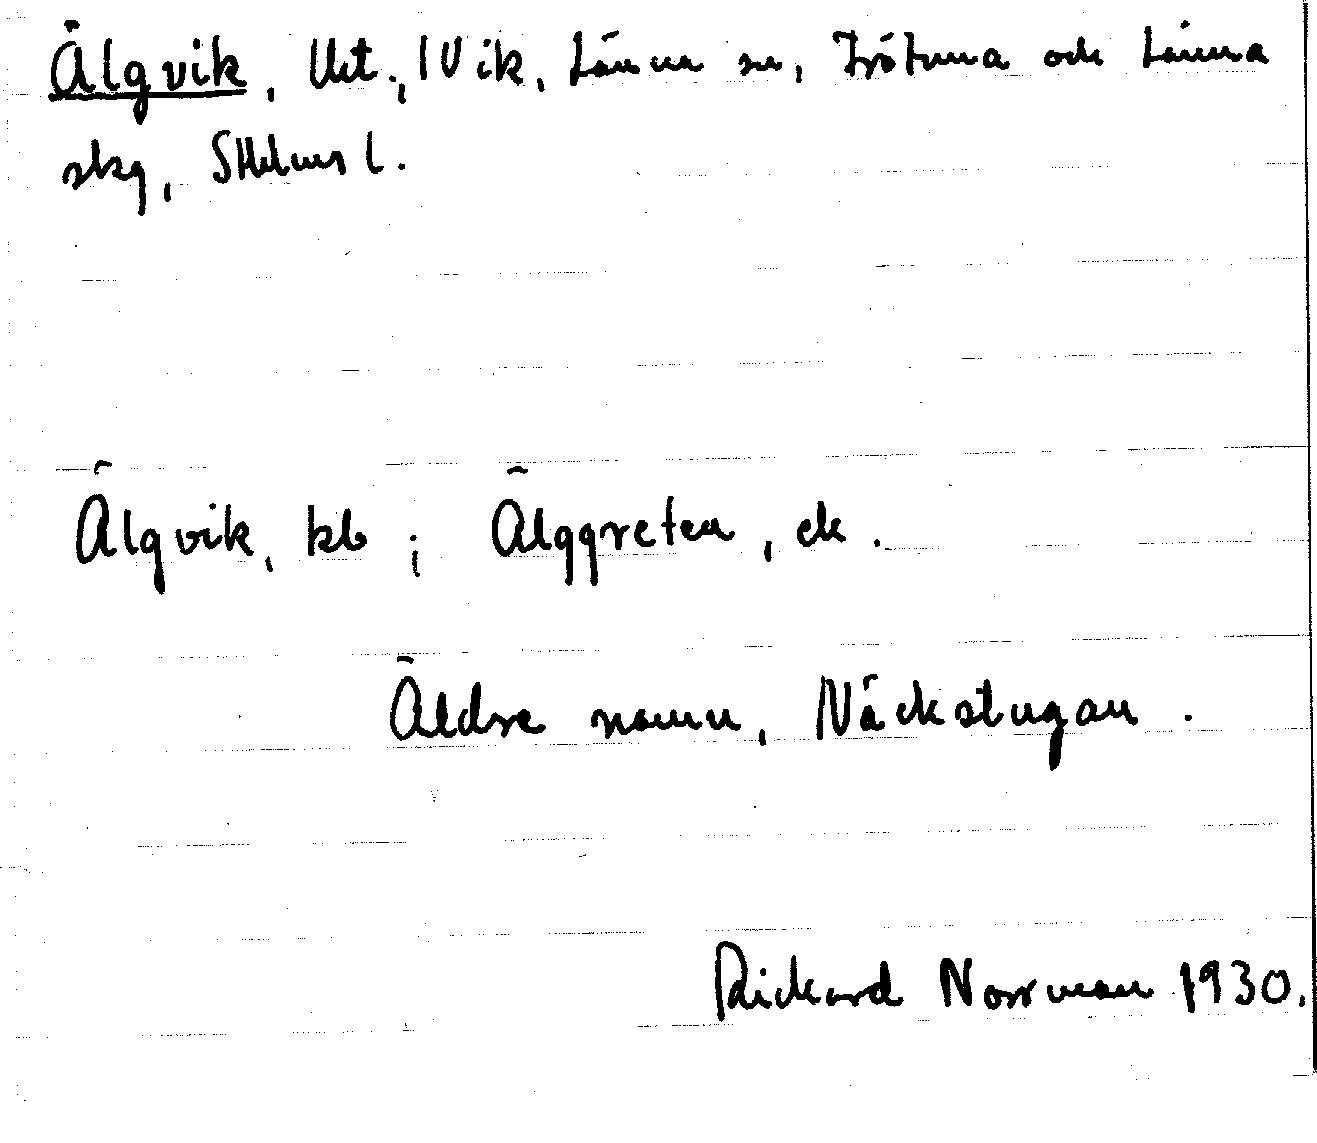 Älgvik, lht., i Vik, Länna sn, Frötuna och Länna
skg, Sthlms l.
Älgvik, kb ; Älggreten, ek.
Äldre namn, Näckstugan.
Rickard Norrman 1930.